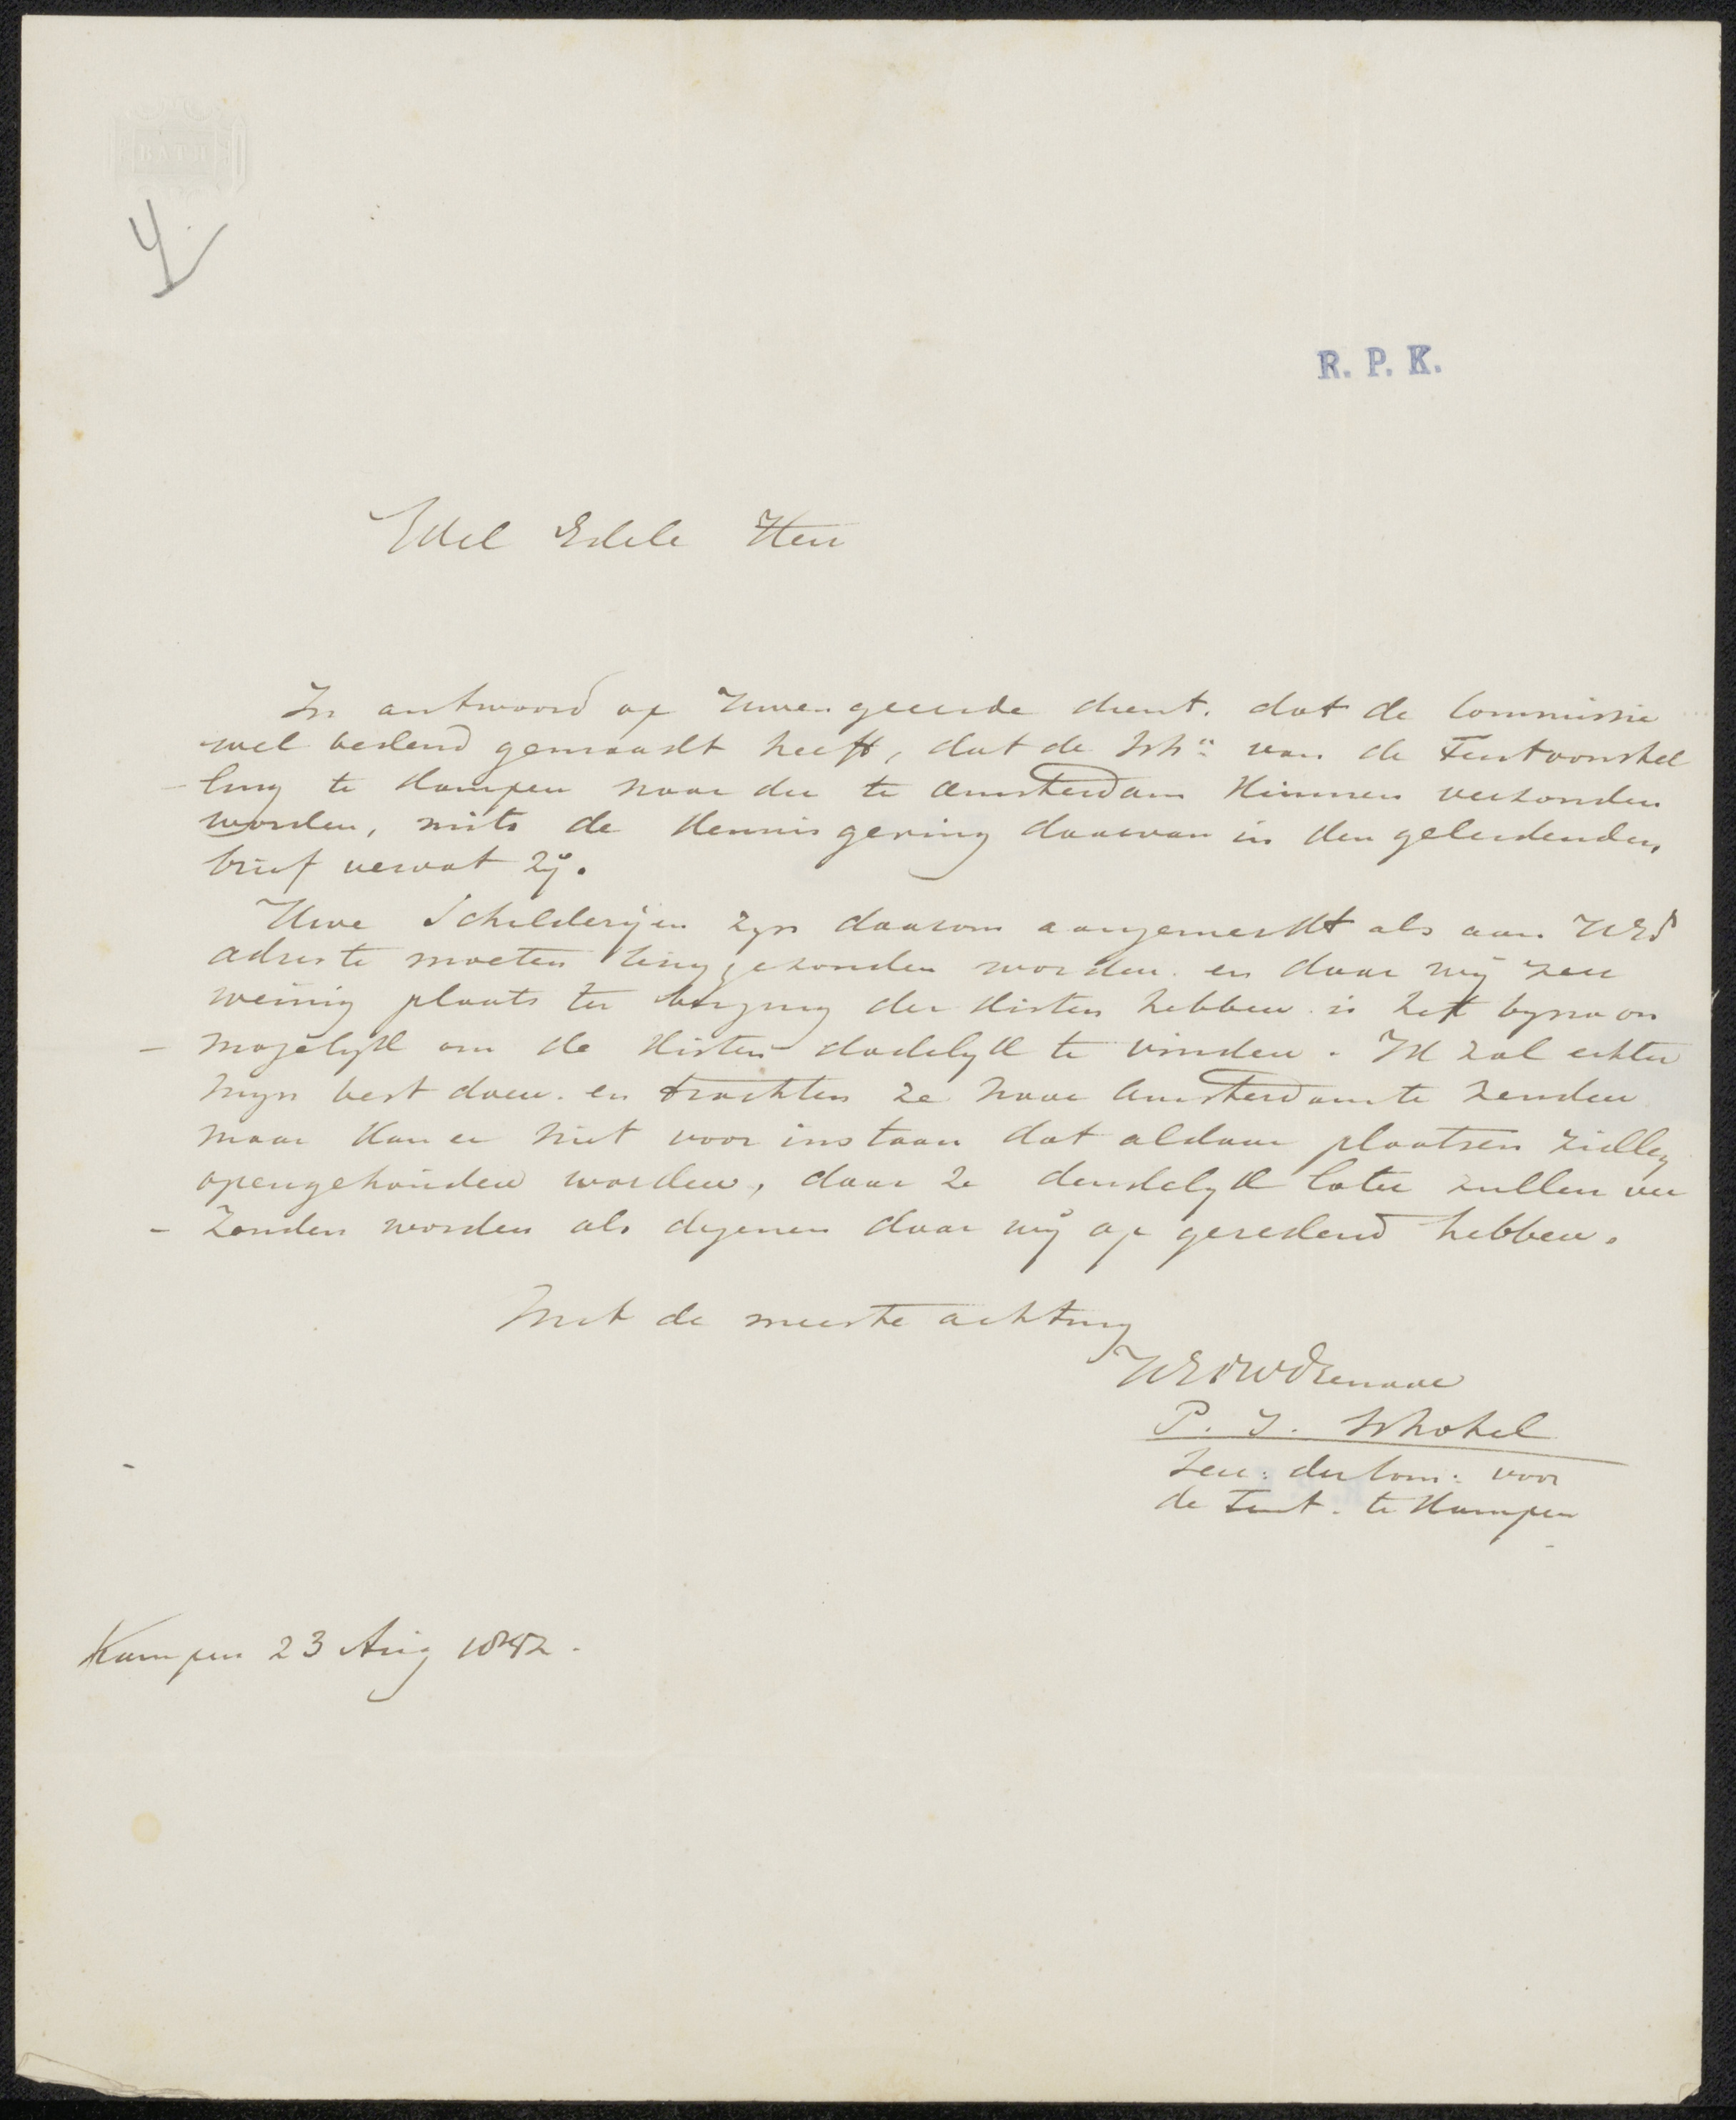 BATH
R. P. K.
Wel Edele Heer
In antwoord op Uwen geeerde dient. dat de Commissie
wel bekend gemaakt heeft, dat de Schn van de Tentoonstel
ling te Kampen naar die te Amsterdam kunnen verzonden
worden, mits de kennisgeving daarvan in den geleidenden
brief vervat zij.
Uwe Schilderijen zijn daarom aangemerkt als aan UEd
adres te moeten teruggezonden worden. en daar wij zeer
weinig plaats ter berging der kisten hebben is het byna on
mogelyk om de kisten dadelyk te vinden. Ik zal echter
myn best doen. en trachten ze naar Amsterdam te zenden
maar kan er niet voor instaan dat aldaar plaatsen zullen
opengehouden worden, daar ze denkelyk later zullen ver
zonden worden als degenen daar wij op gerekend hebben.
Met de meeste achting
UEdWDienaar
P. J. Schotel
Secr: der Com: voor
de Tent. te Kampen
Kampen 23 Aug 1842.